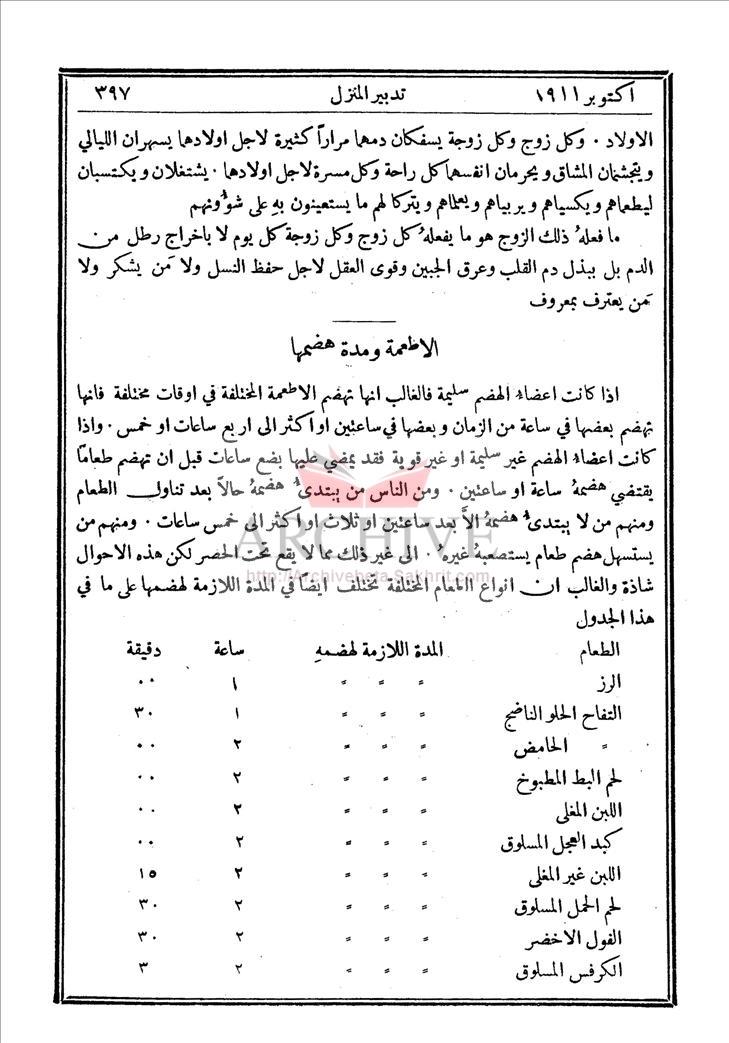 اكتوبر ١٩١١ تدبير المنزل ٣٩٧
الاولاد ٠ وكل زوج وكل زوجة يسفكان دمهما مراراً كثيرة لاجل اولادهما يسهران الليالي
ويتجشمان المشاق ويحرمان انفسهما كل راحة وكل مسرة لاجل اولادهما ٠ يشتغلان ويكتسبان
ليطعماهم ويكسياهم ويربياهم ويعلماهم ويتركا لهم ما يستعينون بهِ على شؤُونهم
ما فعلهُ ذلك الزوج هو ما يفعلهُ كل زوج وكل زوجة كل يوم لا باخراج رطل من
الدم بل ببذل دم القلب وعرق الجبين وقوى العقل لاجل حفظ النسل ولا مَن يشكر ولا
مَن يعترف بمعروف
الاطعمة ومدة هضمها
اذا كانت اعضاءُ الهضم سليمة فالغالب انها تهضم الاطعمة المختلفة في اوقات مختلفة فانها
تهضم بعضها في ساعة من الزمان وبعضها في ساعتين او اكثر الى اربع ساعات او خمس ٠ واذا
كانت اعضاءُ الهضم غير سليمة او غير قوية فقد يمضي عليها بضع ساعات قبل ان تهضم طعاماً
يقتضي هضمهُ ساعة او ساعتين ٠ ومن الناس من يبتدىءُ هضمهُ حالاً بعد تناول الطعام
ومنهم من لا يبتدىءُ هضمهُ الاَّ بعد ساعتين او ثلاث او اكثر الى خمس ساعات ٠ ومنهم من
يستسهل هضم طعام يستصعبهُ غيرهُ ٠ الى غير ذلك مما لا يقع تحت الحصر لكن هذه الاحوال
شاذة والغالب ان انواع الطعام المختلفة تختلف ايضاً في المدة اللازمة لهضمها على ما في
هذا الجدول
ARCHIVE
http://Archivebeta.Sakhrit.com
الطعام المدة اللازمة لهضمهِ ساعة دقيقة
الرز " " " ١ ٠٠
التفاح الحلو الناضج " " " ١ ٣٠
" الحامض " " " ٢ ٠٠
لحم البط المطبوخ " " " ٢ ٠٠
اللبن المغلى " " " ٢ ٠٠
كبد العجل المسلوق " " " ٢ ٠٠
اللبن غير المغلى " " " ٢ ١٥
لحم الحمل المسلوق " " " ٢ ٣٠
الفول الاخضر " " " ٢ ٣٠
الكرفس المسلوق " " " ٢ ٣